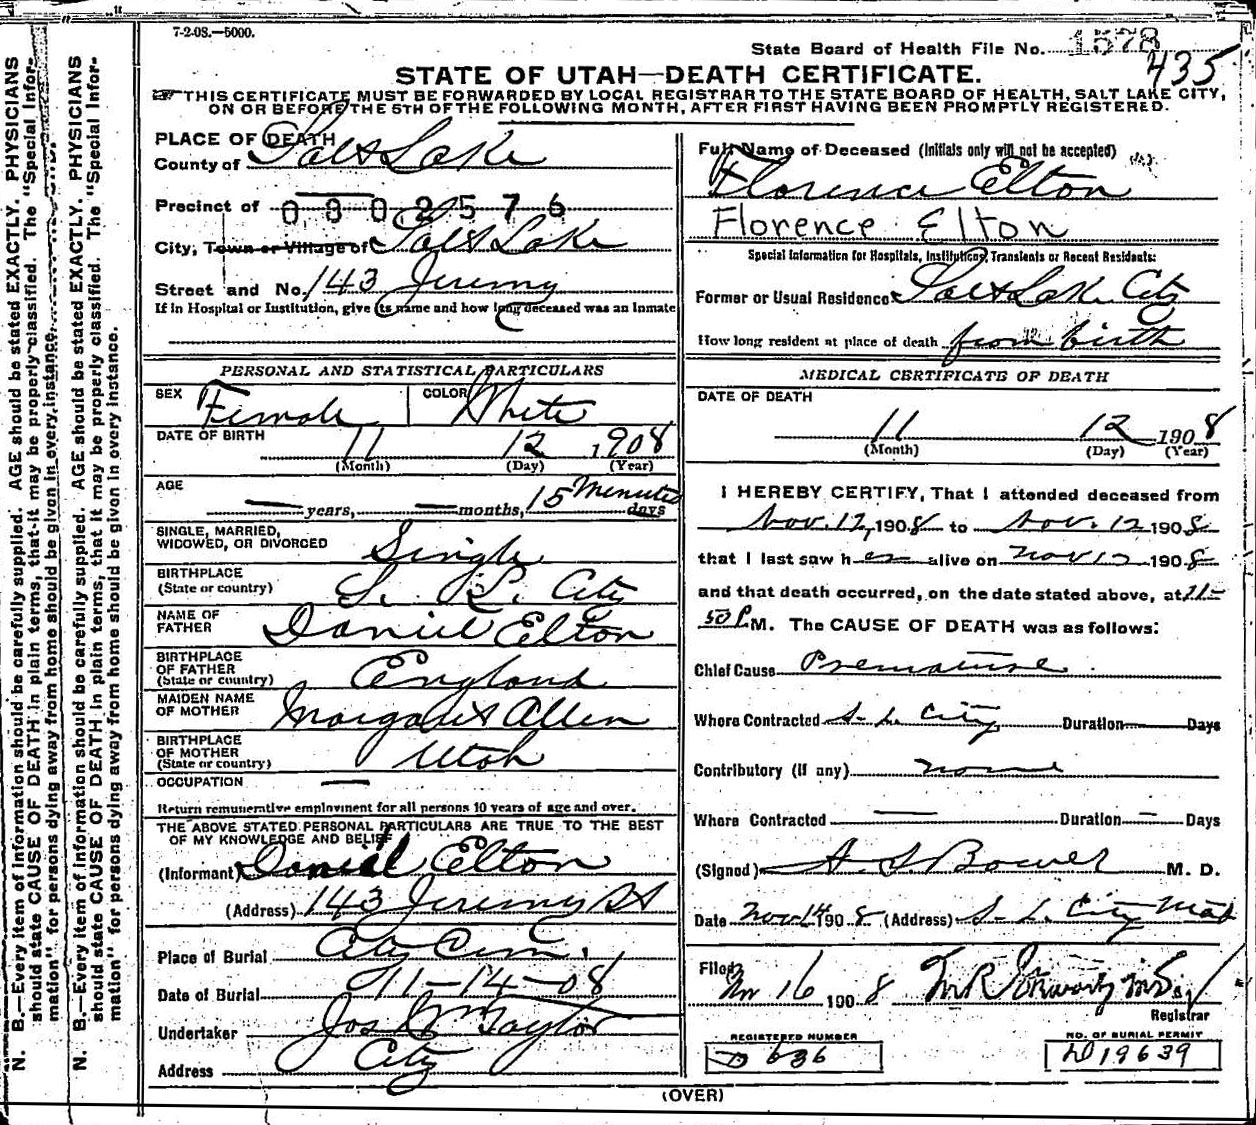 7-2-08.—5000.
State Board of Health File No. 1578
435
STATE OF UTAH—DEATH CERTIFICATE.
THIS CERTIFICATE MUST BE FORWARDED BY LOCAL REGISTRAR TO THE STATE BOARD OF HEALTH, SALT LAKE CITY,
ON OR BEFORE THE 5TH OF THE FOLLOWING MONTH, AFTER FIRST HAVING BEEN PROMPTLY REGISTERED.
N. B.—Every item of information should be carefully supplied. AGE should be stated EXACTLY. PHYSICIANS
should state CAUSE OF DEATH in plain terms, that it may be properly classified. The "Special Infor-
mation" for persons dying away from home should be given in every instance.
N. B.—Every item of information should be carefully supplied. AGE should be stated EXACTLY. PHYSICIANS
should state CAUSE OF DEATH in plain terms, that it may be properly classified. The "Special Infor-
mation" for persons dying away from home should be given in every instance.
PLACE OF DEATH
County of Salt Lake
Precinct of 0802576
City, Town or Village of Salt Lake
Street and No. 143 Jeremy
If in Hospital or Institution, give its name and how long deceased was an inmate
PERSONAL AND STATISTICAL PARTICULARS
SEX Female COLOR White
DATE OF BIRTH 11 12 1908
(Month) (Day) (Year)
AGE — years, — months, 15 Minutes days
SINGLE, MARRIED,
WIDOWED, OR DIVORCED Single
BIRTHPLACE
(State or country) S. L. City
NAME OF
FATHER Daniel Elton
BIRTHPLACE
OF FATHER
(State or country) England
MAIDEN NAME
OF MOTHER Margaret Allen
BIRTHPLACE
OF MOTHER
(State or country) Utah
OCCUPATION —
Return remunerative employment for all persons 10 years of age and over.
THE ABOVE STATED PERSONAL PARTICULARS ARE TRUE TO THE BEST
OF MY KNOWLEDGE AND BELIEF
(Informant) Daniel Elton
(Address) 143 Jeremy St
Place of Burial City Cem.
Date of Burial 11-14-08
Undertaker Jos Wm Taylor
Address City
Full Name of Deceased (Initials only will not be accepted)
Florence Elton
Florence Elton
Special Information for Hospitals, Institutions, Transients or Recent Residents:
Former or Usual Residence Salt Lake City
How long resident at place of death from birth
MEDICAL CERTIFICATE OF DEATH
DATE OF DEATH
11 12 1908
(Month) (Day) (Year)
I HEREBY CERTIFY, That I attended deceased from
Nov. 12, 1908 to Nov. 12 1908
that I last saw her alive on Nov 12 1908
and that death occurred, on the date stated above, at 11-
50 P. M. The CAUSE OF DEATH was as follows:
Chief Cause Premature
Where Contracted S. L. City Duration — Days
Contributory (if any) none
Where Contracted — Duration — Days
(Signed) A. S. Bower M. D.
Date Nov 14 1908 (Address) S. L. City Utah
Filed Nov 16 1908
Registrar
REGISTERED NUMBER
D 636
NO. OF BURIAL PERMIT
D19639
(OVER)